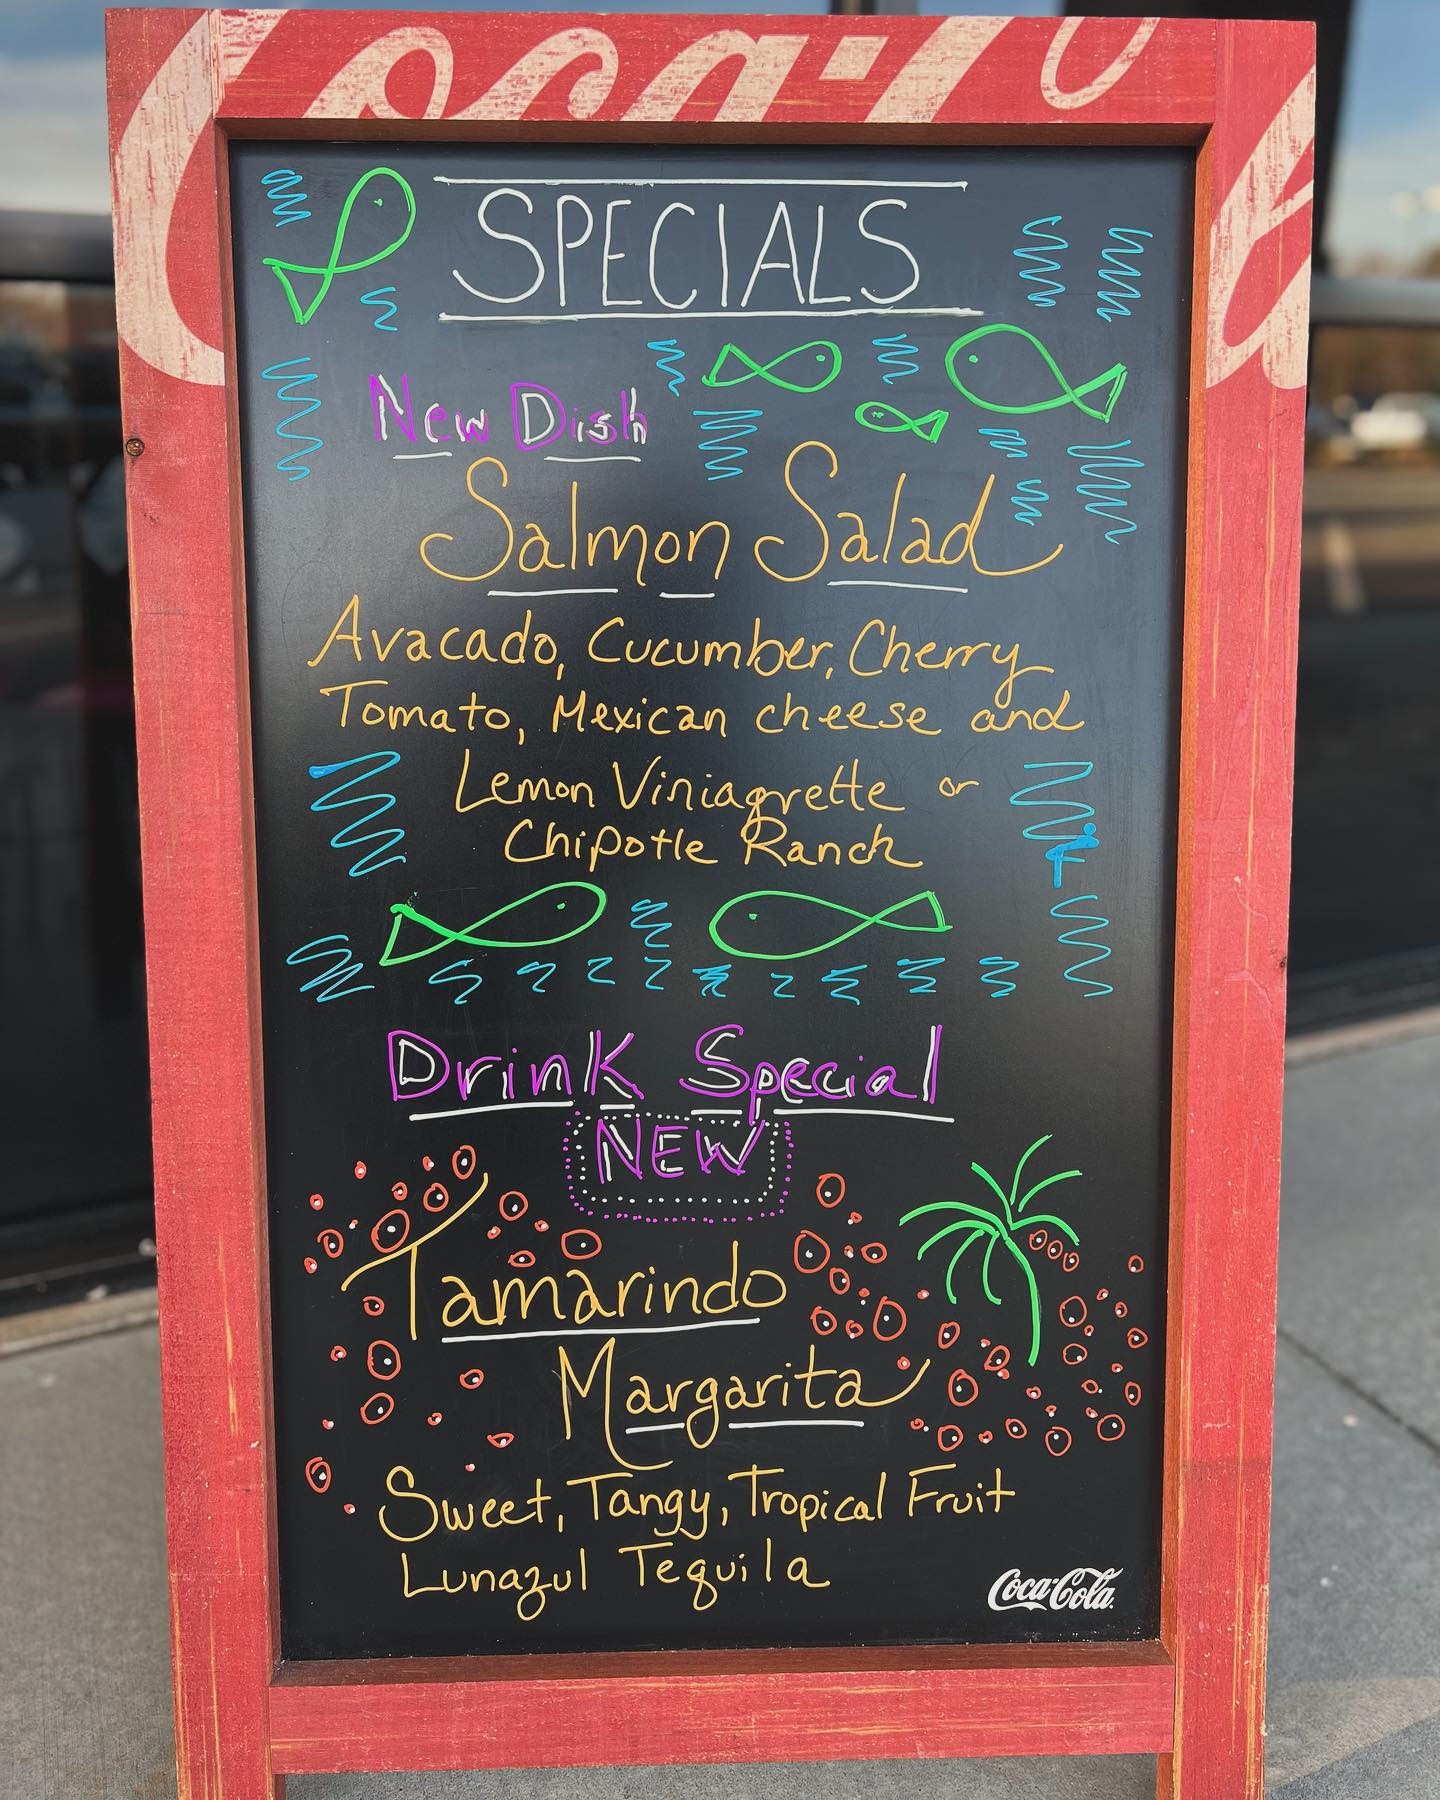 Coca-Co
SPECIALS
New Dish
Salmon Salad
Avacado, Cucumber, Cherry
Tomato, Mexican cheese and
Lemon Viniagrette or
Chipotle Ranch
Drink Special
NEW
Tamarindo
Margarita
Sweet, Tangy, Tropical Fruit
Lunazul Tequila
Coca-Cola